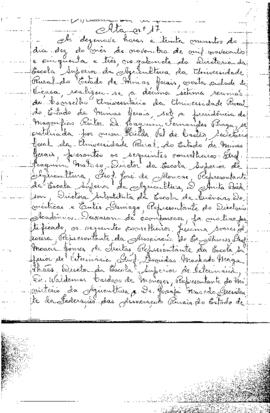 Ata nº 17
Às dezesseis horas e trinta minutos do
dia dez do mês de novembro de mil novecentos
e cinquenta e três no gabinete da Diretoria da
Escola Superior de Agricultura da Universidade
Rural do Estado de Minas Gerais nesta cidade de
Viçosa, realizou-se a décima sétima reunião
do Conselho Universitário da Universidade Rural
do Estado de Minas Gerais, sob a presidência do
Magnífico Reitor Dr. Joaquim Fernandes Braga, se
cretariada por mim
Geral da Universidade Rural do Estado de Minas
Gerais, presentes os seguintes conselheiros: Prof.
Joaquim Matoso, Diretor da Escola Superior de
Agricultura, Prof. José de Alencar, Representante
da Escola Superior de Agricultura, D. Anita
Diretora Substituta da Escola de Ciências Do-
mésticas e
Acadêmico. Deixaram de comparecer, por motivo jus
tificado, os seguintes conselheiros:
Representante da Associação de Ex-Alunos, Prof.
Moacir Gomes de Freitas, Representante da Escola Su
perior de Veterinária, Prof. Leonidas Machado Maga
lhães, Diretor da Escola Superior de Veterinária,
Dr. Waldemar Cardoso de Menezes, Representante do Mi
nistério da Agricultura e Dr. Josafá Macedo, Presiden
te da Federação das Associações Rurais do Estado de